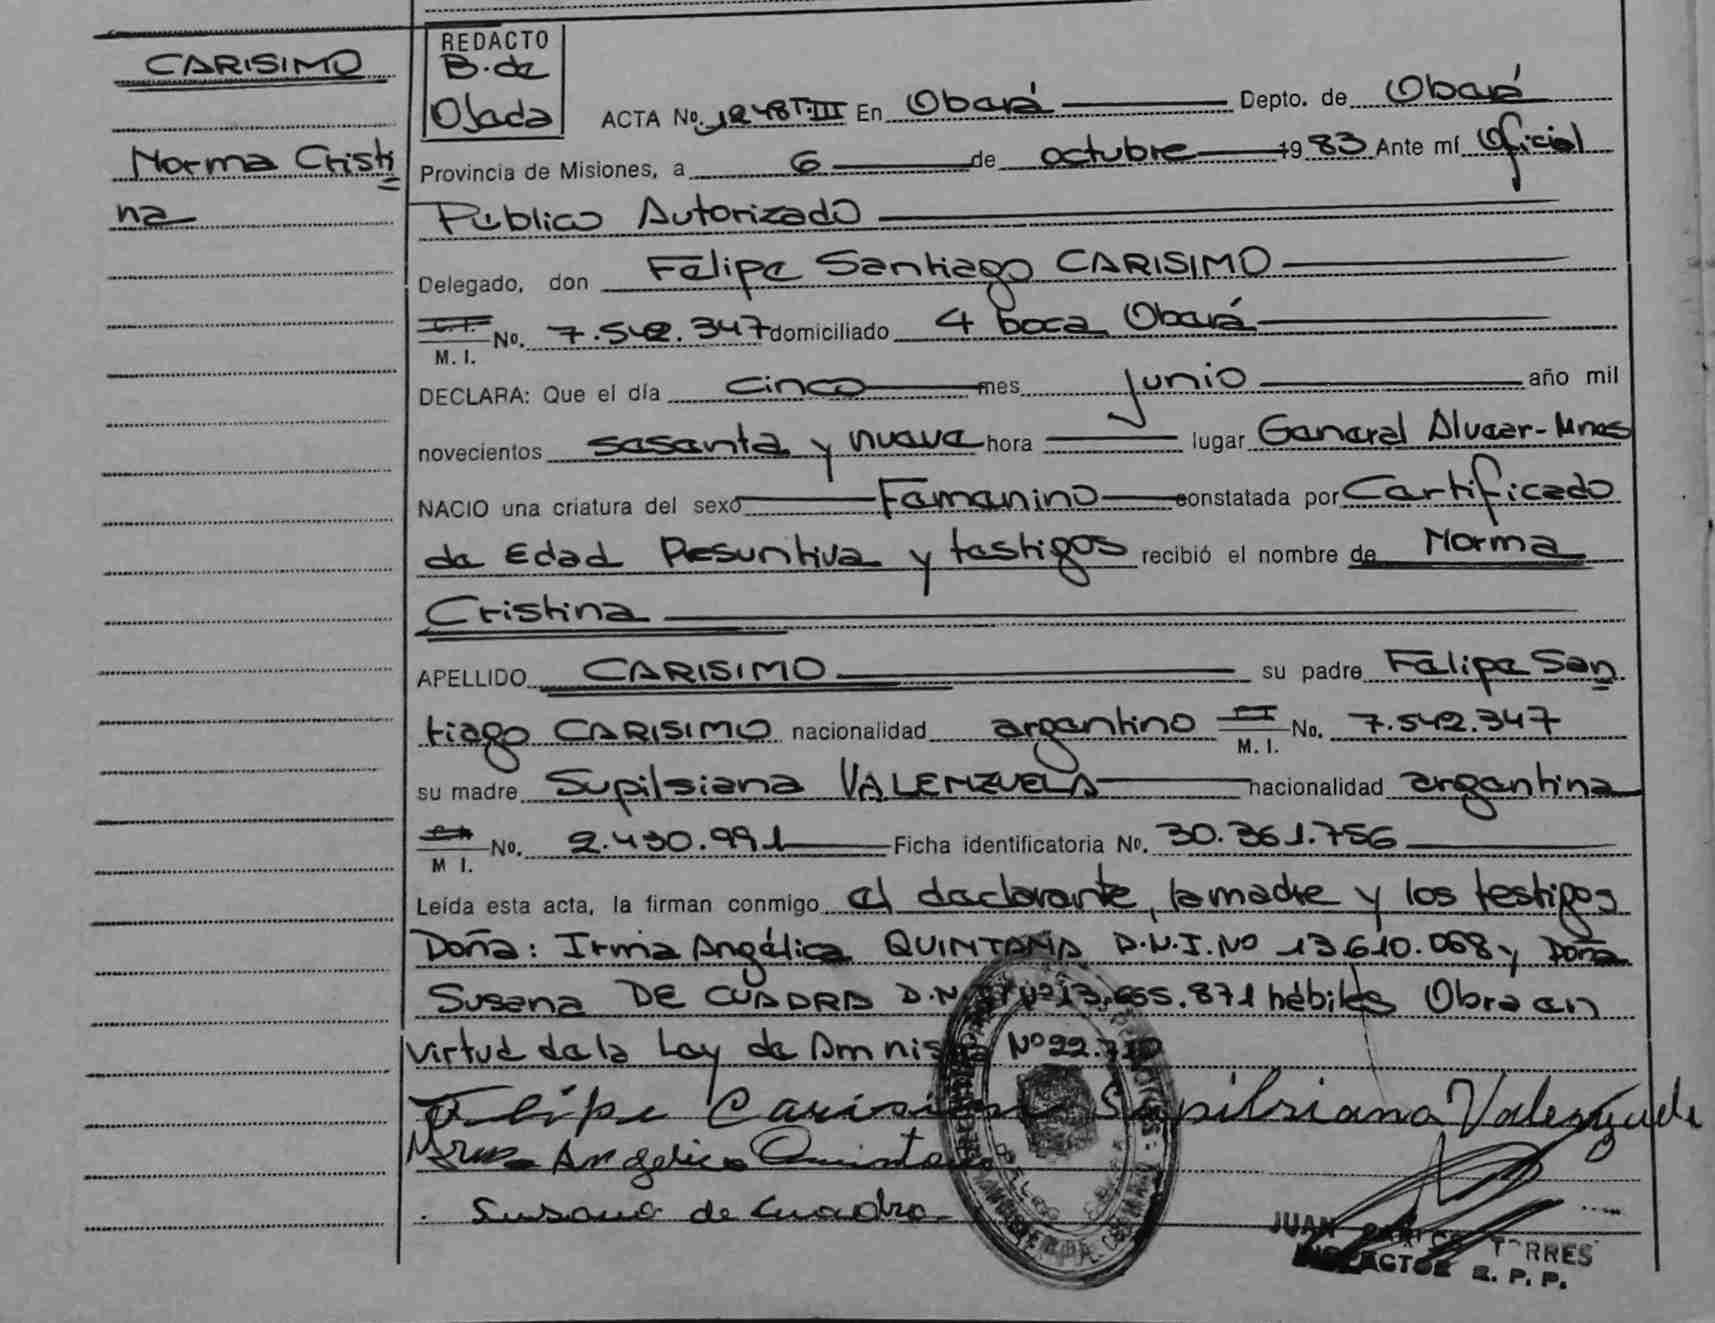 CARISIMO
Norma Cristi
na
REDACTO
B. de
Ojeda
ACTA No. 1248 T. III En Oberá Depto. de Oberá
Provincia de Misiones, a 6 de octubre 1983 Ante mí Oficial
Público Autorizado
Delegado, don Felipe Santiago CARISIMO
C.I. M. I. No. 7.542.347 domiciliado 4 boca Oberá
DECLARA: Que el día cinco mes junio año mil
novecientos sesenta y nueve hora lugar General Alvear-Mnes
NACIO una criatura del sexo Femenino constatada por Certificado
de Edad Presuntiva y testigos recibió el nombre de Norma
Cristina
APELLIDO CARISIMO su padre Felipe San
tiago CARISIMO nacionalidad argentino C.I. M. I. No. 7.542.347
su madre Supilsiana VALENZUELA nacionalidad argentina
M I. No. 2.430.991 Ficha identificatoria No. 30.361.756
Leída esta acta, la firman conmigo el declarante, la madre y los testigos
Doña: Irma Angélica QUINTANA D.N.I. Nº 13.610.068 y Doña
Susana DE CUADRA D.N.I. Nº 13.655.871 hábiles Obra en
virtud de la Ley de Amnis Nº 22.
Felipe Carisimo Supilsiana Valenzuela
Irma Angelica Quintana
Susana de Cuadra
JUAN CARLOS TORRES
INSPECTOR R. P. P.